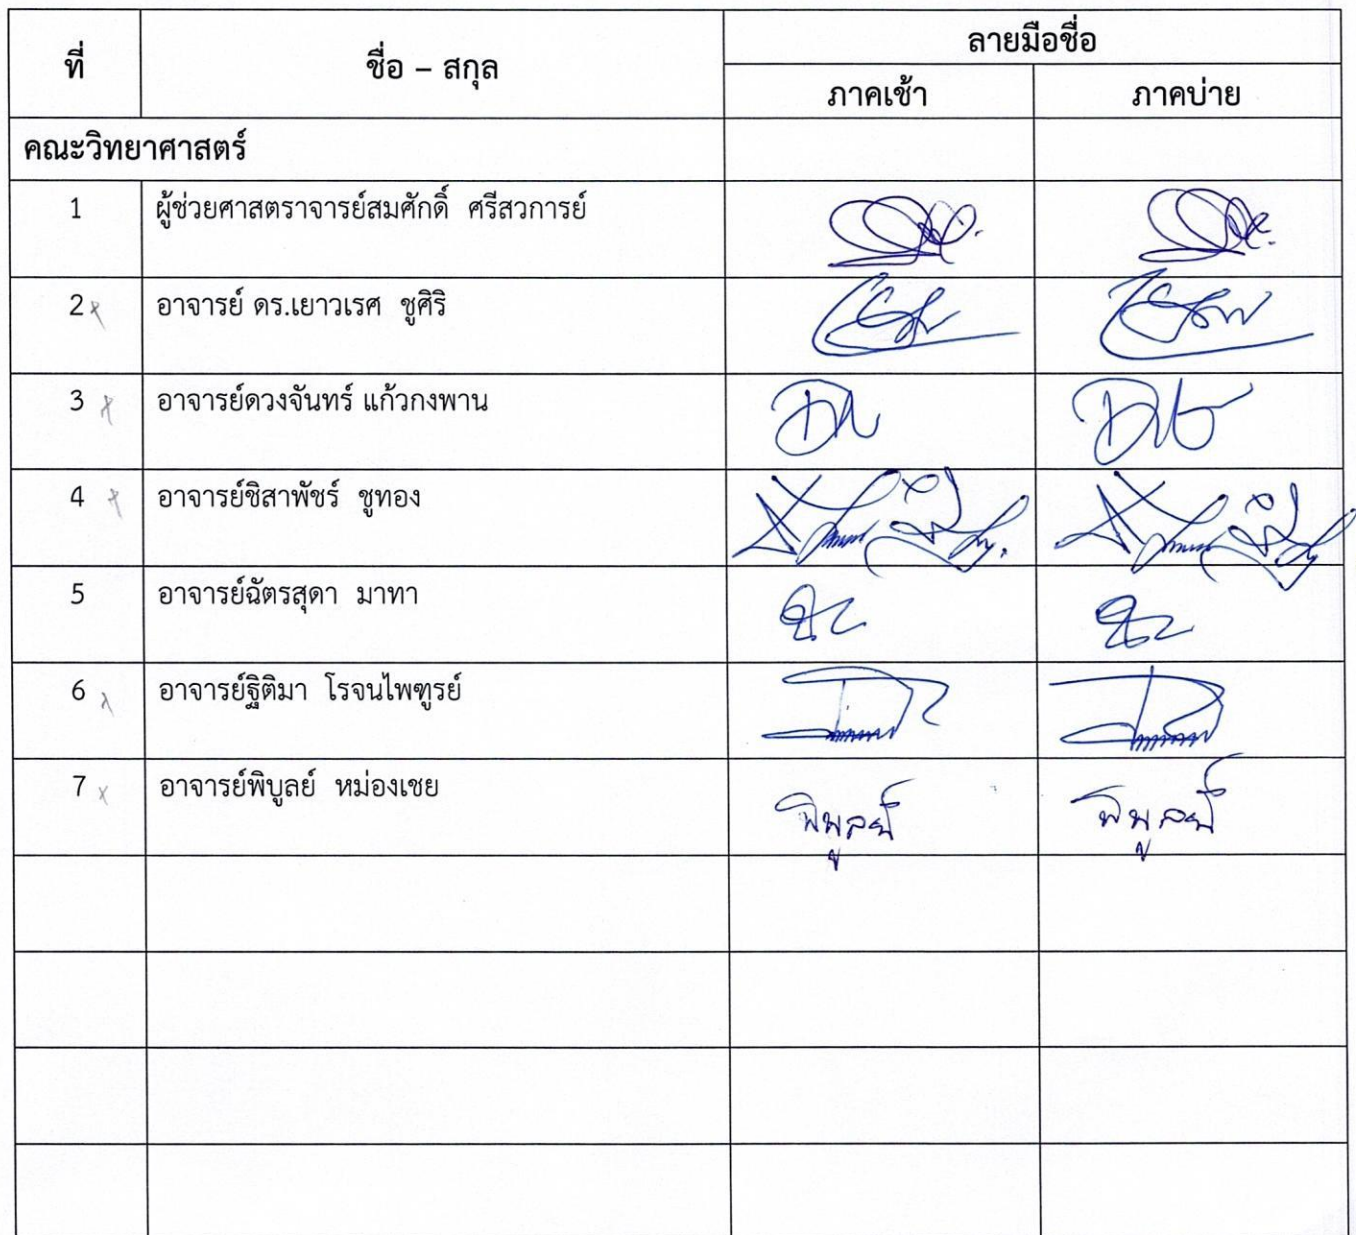 ที่ ชื่อ – สกุล ลายมือชื่อ
ภาคเช้า ภาคบ่าย
คณะวิทยาศาสตร์
1 ผู้ช่วยศาสตราจารย์สมศักดิ์ ศรีสวการย์
2 อาจารย์ ดร.เยาวเรศ ชูศิริ
3 อาจารย์ดวงจันทร์ แก้วกงพาน
4 อาจารย์ชิสาพัชร์ ชูทอง
5 อาจารย์ฉัตรสุดา มาทา
6 อาจารย์ฐิติมา โรจนไพฑูรย์
7 อาจารย์พิบูลย์ หม่องเชย พิบูลย์ พิบูลย์